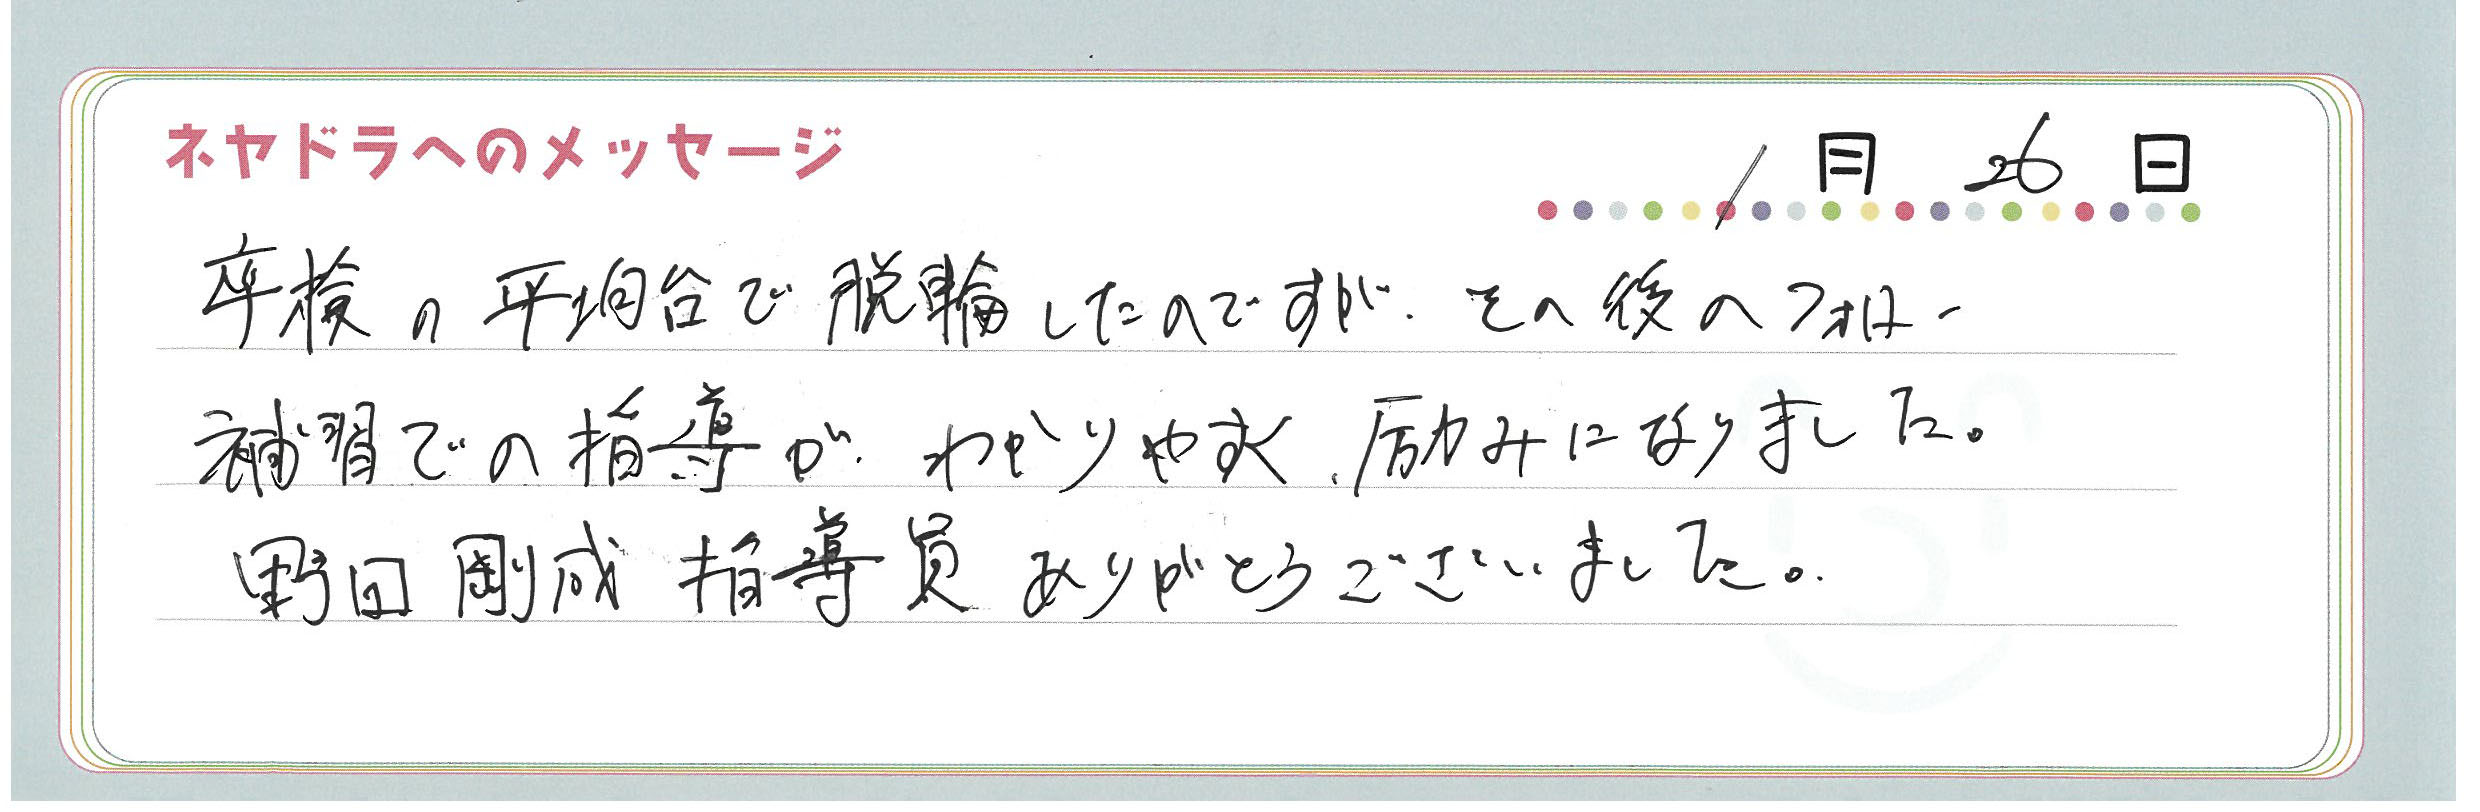 ネヤドラへのメッセージ
1月 26日
卒検の平均台で脱輪したのですが、その後のフォロー
補習での指導が、わかりやすく、励みになりました。
野田 剛成 指導員 ありがとうございました。